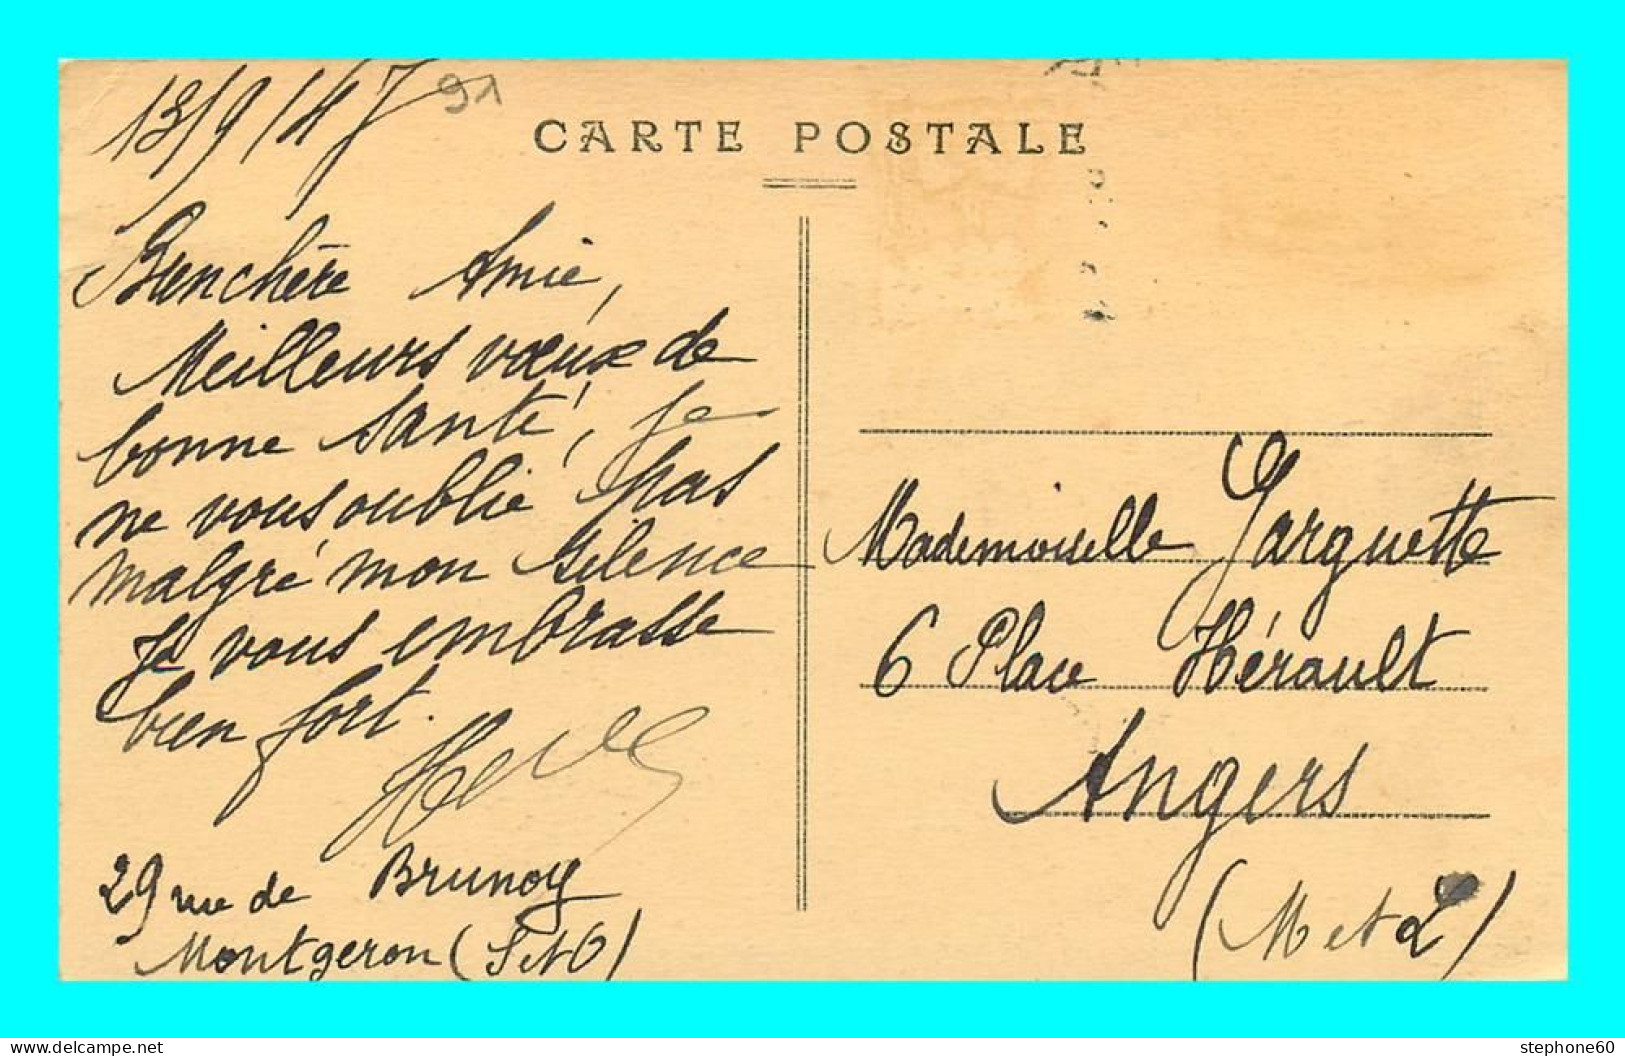 13/9/47
91
CARTE POSTALE
Bien chère Amie,
Meilleurs vœux de
bonne santé, je
ne vous oublie pas
malgré mon silence
Je vous embrasse
bien fort.
29 rue de Brunoy
Montgeron (S et O)
Mademoiselle Garguette
6 Place Hérault
Angers
(M et L)
delcampe.net
stephone60